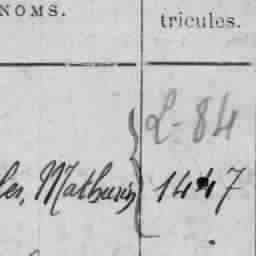 NOMS.
tricules.
L-84
les, Mathurin
1447